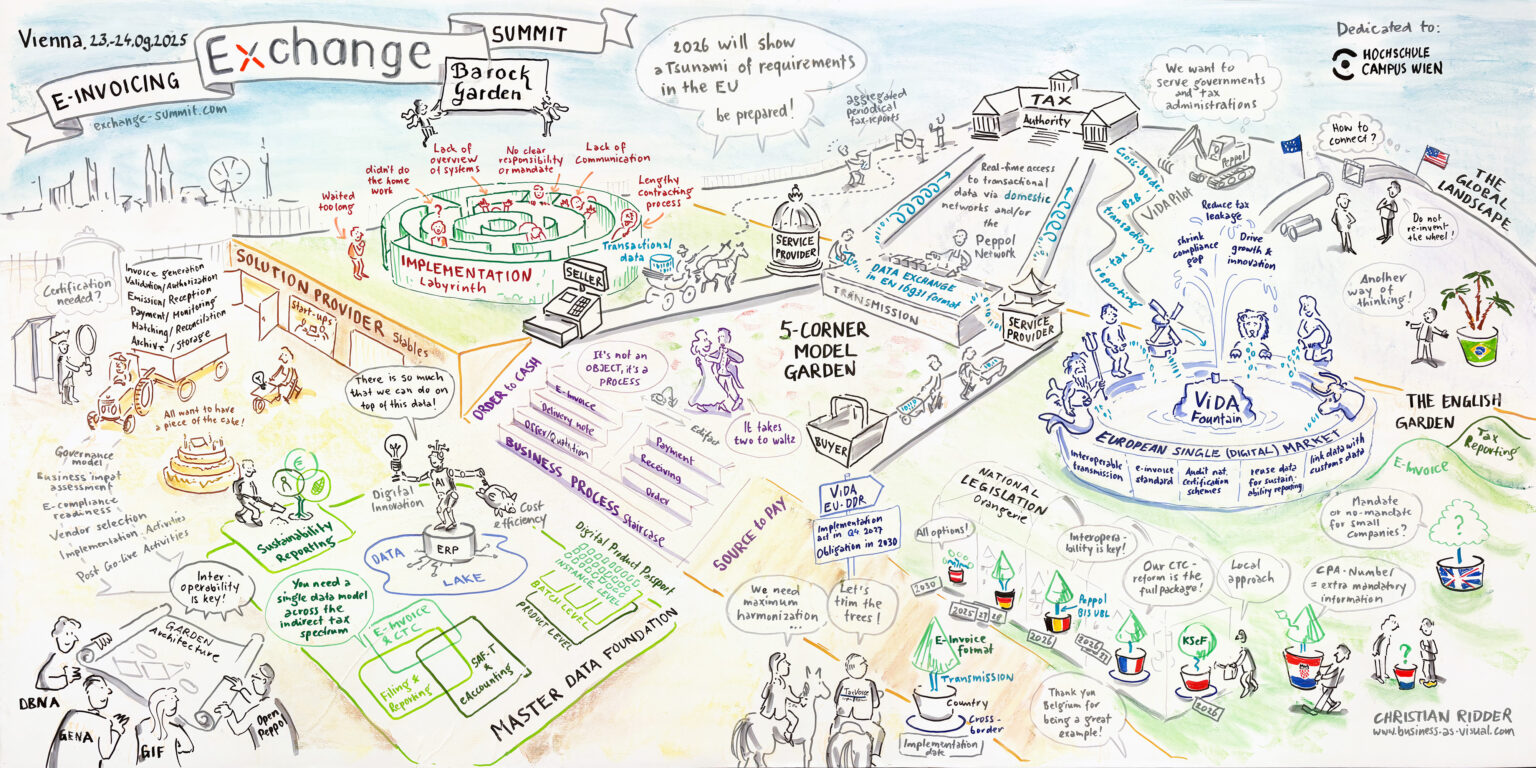 Vienna, 23.-24.09.2025
E-INVOICING
Exchange
SUMMIT
exchange-summit.com
Barock
Garden
2026 will show
a Tsunami of requirements
in the EU
be prepared!
aggregated
periodical
tax-reports
TAX
Authority
We want to
serve governments
and tax
administrations
Dedicated to:
HOCHSCHULE
CAMPUS WIEN
Peppol
ViDA Pilot
How to
connect?
THE
GLOBAL
LANDSCAPE
Do not
re-invent
the wheel!
Waited
too long
didn't do
the home
work
Lack of
overview
of systems
No clear
responsibility
or mandate
Lack of
communication
Lengthy
contracting
process
IMPLEMENTATION
Labyrinth
Transactional
data
SERVICE
PROVIDER
Real-time access
to transactional
data via domestic
networks and/or
the
Peppol
Network
DATA EXCHANGE
in EN 16931 format
TRANSMISSION
SERVICE
PROVIDER
Cross-border B2B
transactions
tax
reporting
Reduce tax
leakage
shrink
compliance
gap
Drive
growth &
innovation
ViDA
Fountain
EUROPEAN SINGLE (DIGITAL) MARKET
Interoperable
transmission
e-invoice
standard
Audit nat.
Certification
schemes
reuse data
for sustain-
ability reporting
link data with
customs data
Another
way of
thinking!
THE ENGLISH
GARDEN
Tax
Reporting
E-Invoice
Mandate
or no-mandate
for small
companies?
?
Certification
needed?
Invoice generation
Validation/Authorization
Emission/Reception
Payment/Monitoring
Matching/Reconciliation
Archive/Storage
SOLUTION PROVIDER Stables
Start-ups
SELLER
5-CORNER
MODEL
GARDEN
BUYER
All want to have
a piece of the cake!
Governance
model
Business impat
assessment
E-compliance
readiness
Vendor selection
Implementation Activities
Post Go-live Activities
There is so much
that we can do on
top of this data!
Digital
Innovation
AI
Cost
efficiency
ERP
DATA
LAKE
Sustainability
Reporting
ORDER to CASH
It's not an
OBJECT, it's a
PROCESS
E-Invoice
Delivery note
Offer/Quotation
BUSINESS PROCESS Staircase
Edifact
Payment
Receiving
Order
It takes
two to waltz
SOURCE to PAY
Inter-
operability
is key!
GARDEN
Architecture
DBNA
GENA
GIF
Open
Peppol
You need a
single data model
across the
indirect tax
spectrum
E-Invoice
& CTC
Filing &
Reporting
SAF-T
&
eAccounting
MASTER DATA FOUNDATION
Digital Product Passport
INSTANCE LEVEL
BATCH LEVEL
PRODUCT LEVEL
ViDA
EU-DDR
Implementation
act in Q4 2027
Obligation in 2030
We need
maximum
harmonization...
Let's
trim the
trees!
NATIONAL
LEGISLATION
Orangerie
All options!
2030
2025
27
28
Interopera-
bility is key!
Peppol
BIS UBL
2026
Our CTC-
reform is the
full package!
2026
27
Local
approach
KSeF
2026
CPA-Number
= extra mandatory
information
?
E-Invoice
format
Transmission
Country
Cross-
border
Implementation
date
Thank you
Belgium for
being a great
example!
CHRISTIAN RIDDER
www.business-as-visual.com